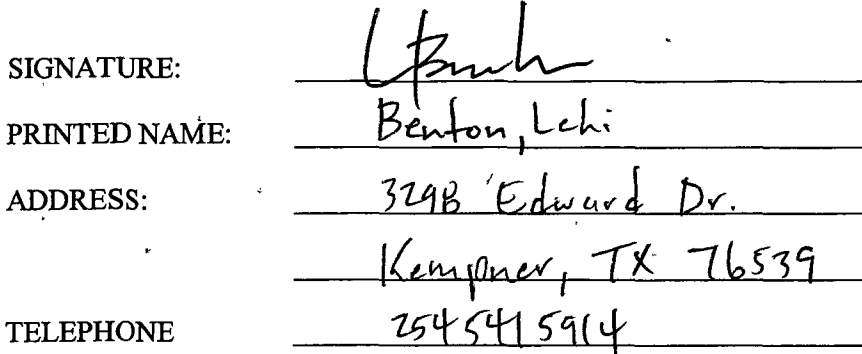 SIGNATURE:
PRINTED NAME: Benton, Lehi
ADDRESS: 329B Edward Dr.
Kempner, TX 76539
TELEPHONE 2545415914